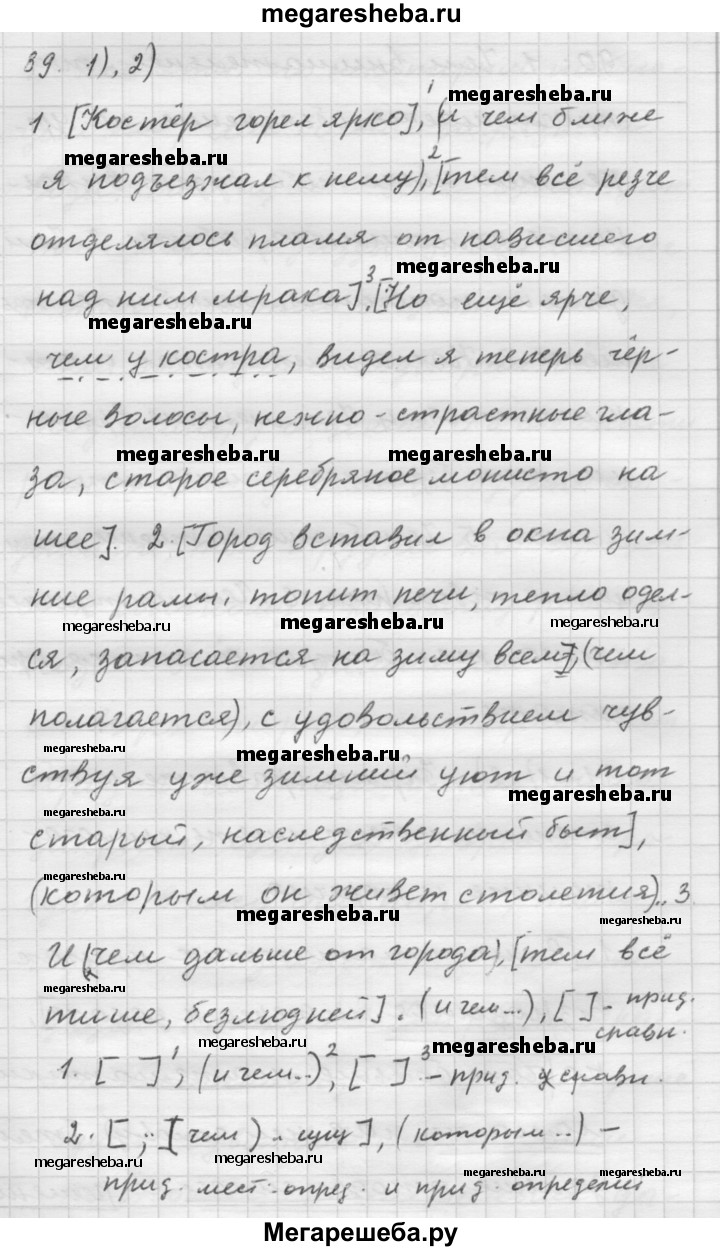 megaresheba.ru
39. 1), 2)
megaresheba.ru
1. [Костёр горел ярко],¹ (и чем ближе
megaresheba.ru
я подъезжал к нему),² [тем всё резче
отделялось пламя от нависшего
megaresheba.ru
над ним мрака]³. [Но ещё ярче,
megaresheba.ru
чем у костра, видел я теперь чёр-
ные волосы, нежно-страстные гла-
megaresheba.ru megaresheba.ru
за, старое серебряное монисто на
шее]. 2. [Город вставил в окна зим-
ние рамы, топит печи, тепло одел-
megaresheba.ru megaresheba.ru megaresheba.ru
ся, запасается на зиму всем], (чем
полагается), с удовольствием чув-
megaresheba.ru megaresheba.ru
ствуя уже зимний уют и тот
megaresheba.ru megaresheba.ru
старый, наследственный быт],
(которым он живет столетия).. 3
megaresheba.ru megaresheba.ru
И (чем дальше от города), [тем всё
megaresheba.ru
тише, безлюдней]. (и чем...), [ ] - прид.
сравн.
megaresheba.ru megaresheba.ru
1. [ ]¹, (и чем..)², [ ]³ - прид. сравн.
2. [ ; [чем) .. сущ], (которым..) -
megaresheba.ru megaresheba.ru megaresheba.ru
прид. мест.-опред. и прид. определит
Мегарешеба.ру